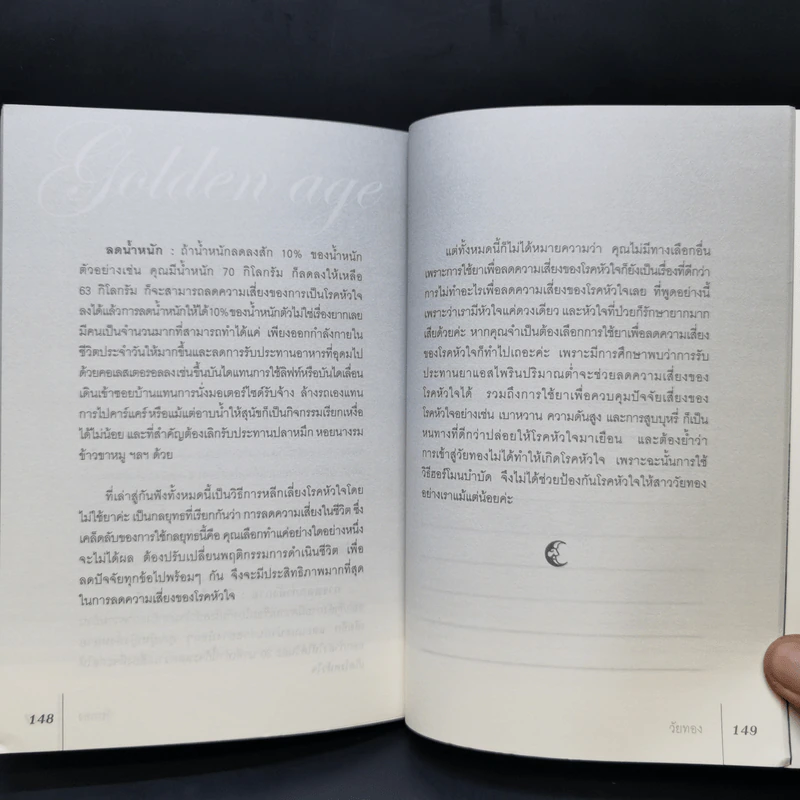 Golden age
ลดน้ำหนัก : ถ้าน้ำหนักลดลงสัก 10% ของน้ำหนัก
ตัวอย่างเช่น คุณมีน้ำหนัก 70 กิโลกรัม ก็ลดลงให้เหลือ
63 กิโลกรัม ก็จะสามารถลดความเสี่ยงของการเป็นโรคหัวใจ
ลงได้แล้วการลดน้ำหนักให้ได้10%ของน้ำหนักตัวไม่ใช่เรื่องยากเลย
มีคนเป็นจำนวนมากที่สามารถทำได้แค่ เพียงออกกำลังกายใน
ชีวิตประจำวันให้มากขึ้นและลดการรับประทานอาหารที่อุดมไป
ด้วยคอเลสเตอรอลลงเช่นขึ้นบันไดแทนการใช้ลิฟท์หรือบันไดเลื่อน
เดินเข้าซอยบ้านแทนการนั่งมอเตอร์ไซด์รับจ้าง ล้างรถเองแทน
การไปคาร์แคร์ หรือแม้แต่อาบน้ำให้สุนัขก็เป็นกิจกรรมเรียกเหงื่อ
ได้ไม่น้อย และที่สำคัญต้องเลิกรับประทานปลาหมึก หอยนางรม
ข้าวขาหมู ฯลฯ ด้วย
ที่เล่าสู่กันฟังทั้งหมดนี้เป็นวิธีการหลีกเลี่ยงโรคหัวใจโดย
ไม่ใช้ยาค่ะ เป็นกลยุทธที่เรียกกันว่า การลดความเสี่ยงในชีวิต ซึ่ง
เคล็ดลับของการใช้กลยุทธนี้คือ คุณเลือกทำแค่อย่างใดอย่างหนึ่ง
จะไม่ได้ผล ต้องปรับเปลี่ยนพฤติกรรมการดำเนินชีวิต เพื่อ
ลดปัจจัยทุกข้อไปพร้อมๆ กัน จึงจะมีประสิทธิภาพมากที่สุด
ในการลดความเสี่ยงของโรคหัวใจ
148
แต่ทั้งหมดนี้ก็ไม่ได้หมายความว่า คุณไม่มีทางเลือกอื่น
เพราะการใช้ยาเพื่อลดความเสี่ยงของโรคหัวใจก็ยังเป็นเรื่องที่ดีกว่า
การไม่ทำอะไรเพื่อลดความเสี่ยงของโรคหัวใจเลย ที่พูดอย่างนี้
เพราะว่าเรามีหัวใจแค่ดวงเดียว และหัวใจที่ป่วยก็รักษายากมาก
เสียด้วยค่ะ หากคุณจำเป็นต้องเลือกการใช้ยาเพื่อลดความเสี่ยง
ของโรคหัวใจก็ทำไปเถอะค่ะ เพราะมีการศึกษาพบว่าการรับ
ประทานยาแอสไพรินปริมาณต่ำจะช่วยลดความเสี่ยงของ
โรคหัวใจได้ รวมถึงการใช้ยาเพื่อควบคุมปัจจัยเสี่ยงของ
โรคหัวใจอย่างเช่น เบาหวาน ความดันสูง และการสูบบุหรี่ ก็เป็น
หนทางที่ดีกว่าปล่อยให้โรคหัวใจมาเยือน และต้องย้ำว่า
การเข้าสู่วัยทองไม่ได้ทำให้เกิดโรคหัวใจ เพราะฉะนั้นการใช้
วิธีฮอร์โมนบำบัด จึงไม่ได้ช่วยป้องกันโรคหัวใจให้สาววัยทอง
อย่างเราแม้แต่น้อยค่ะ
วัยทอง 149